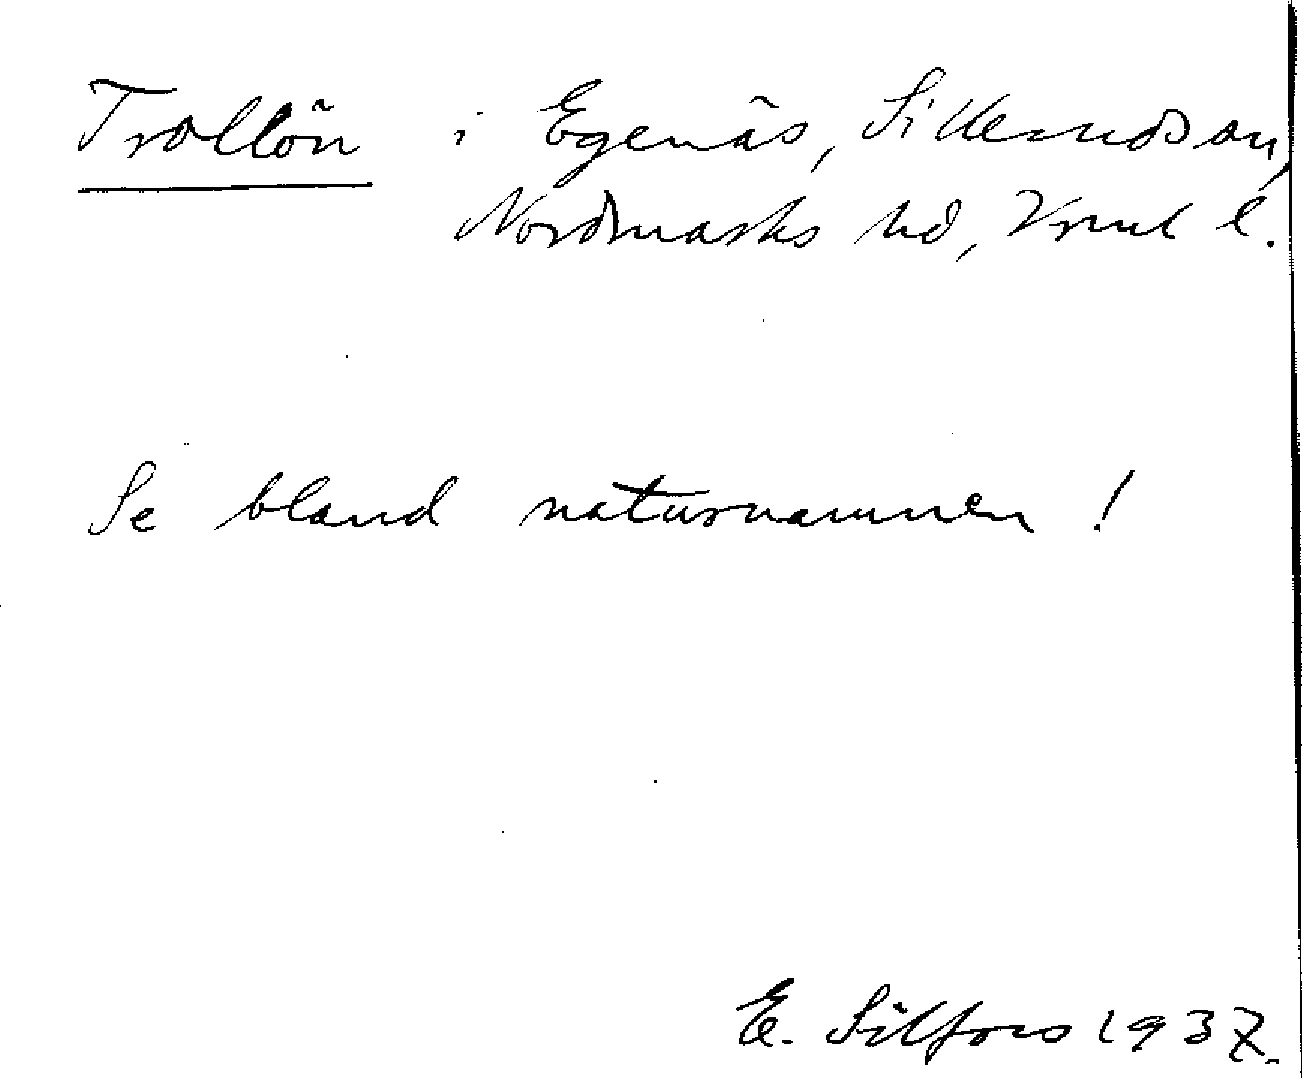 Trollön i Egenäs, Sillerudssn,
Nordmarks hd, Vrml l.
Se bland naturnamnen!
E. Silfors 1937.